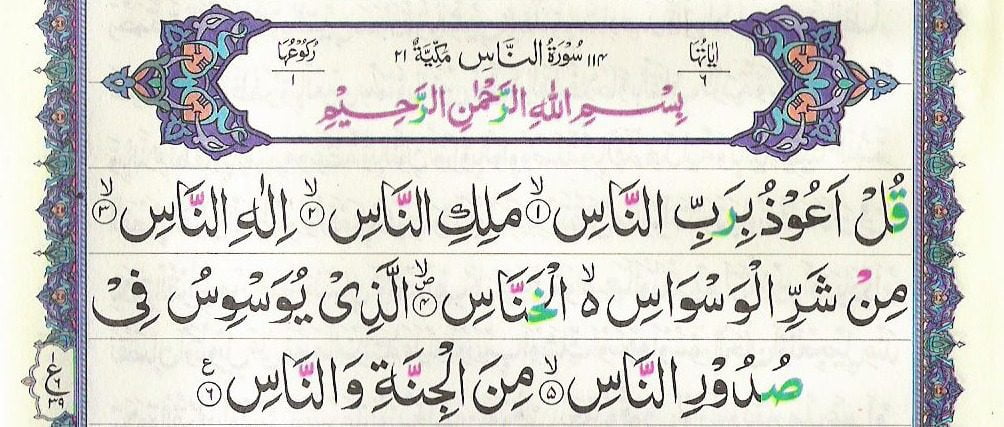 اٰیَاتُهَا ٦ ١١٤ سُوْرَةُ النَّاسِ مَكِّيَّةٌ ٢١ رُكُوْعُهَا ١
بِسْمِ اللهِ الرَّحْمٰنِ الرَّحِيْمِ
قُلْ اَعُوْذُ بِرَبِّ النَّاسِ ۙ﴿١﴾ مَلِكِ النَّاسِ ۙ﴿٢﴾ اِلٰهِ النَّاسِ ۙ﴿٣﴾
مِنْ شَرِّ الْوَسْوَاسِ ەۙ الْخَنَّاسِ ۪ۙ﴿٤﴾ الَّذِیْ يُوَسْوِسُ فِیْ
صُدُوْرِ النَّاسِ ۙ﴿٥﴾ مِنَ الْجِنَّةِ وَالنَّاسِ ع﴿٦﴾
١
ع ٦
٣٩